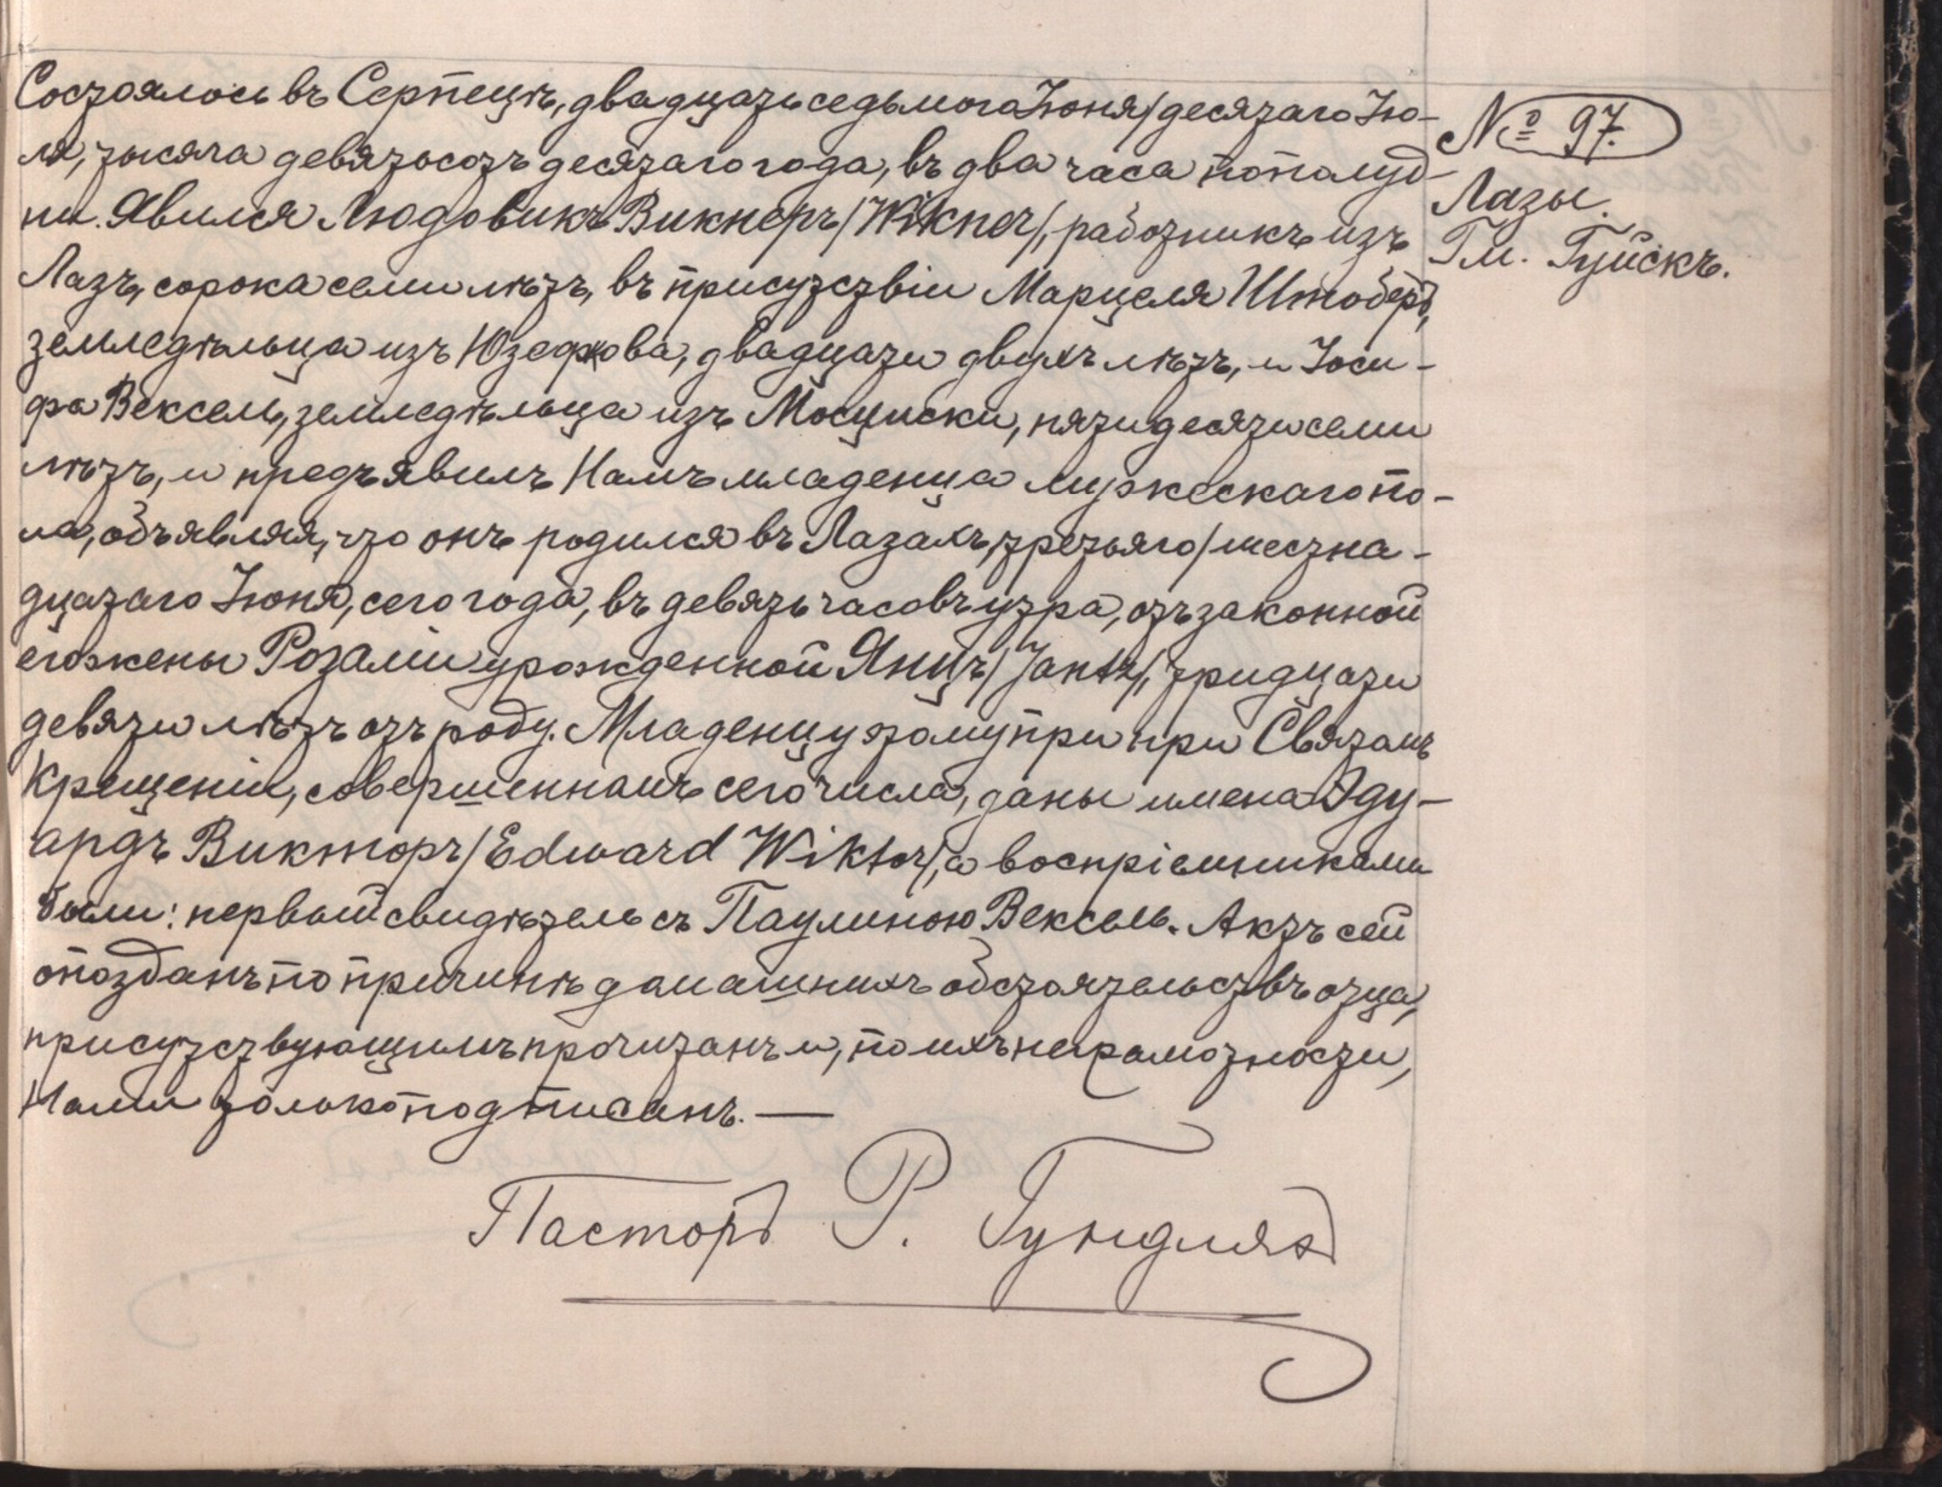 Состоялось въ Серпецѣ, двадцать седьмого Іюня/десятаго Ію-
ля, тысяча девятьсотъ десятаго года, въ два часа пополуд-
ни. Явился Людовикъ Викнеръ/Wikner/, работникъ изъ
Лазъ, сорока семи лѣтъ, въ присутствіи Марцеля Штоберъ,
земледѣльца изъ Юзефкова, двадцати двухъ лѣтъ, и Іоси-
фа Вексель, земледѣльца изъ Мосциски, пятидесяти семи
лѣтъ, и предъявилъ Намъ младенца мужескаго по-
ла, объявляя, что онъ родился въ Лазахъ, третьяго/шестна-
дцатаго Іюня, сего года, въ девять часовъ утра, отъ законной
его жены Розаліи урожденной Янцъ/Jantz/, тридцати
девяти лѣтъ отъ роду. Младенцу этому при при Святомъ
Крещеніи, совершенномъ сего числа, даны имена Эду-
ардъ Викторъ/Edward Wiktor/, а воспріемниками
были: первый свидѣтель съ Паулиною Вексель. Актъ сей
опозданъ по причинѣ домашнихъ обстоятельствъ отца,
присутствующимъ прочитанъ и, по ихъ неграмотности,
Нами только подписанъ. —
Пасторъ Р. Гундляхъ
№ 97.
Лазы.
Гм. Гуйскъ.